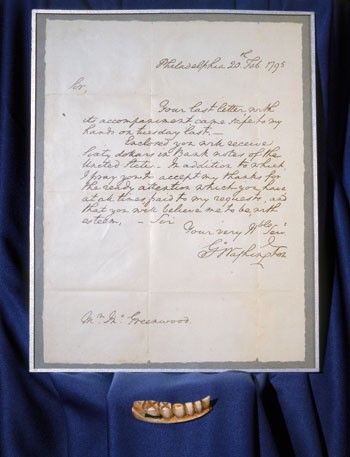 Philadelphia 20th Feb. 1795
Sir,
Your last letter with
its accompaniment came safe to my
hands on tuesday last. —
Enclosed you will receive
sixty dollars in Bank notes of the
United States. In addition to which
I pray you to accept my thanks for
the ready attention which you have
at all times paid to my requests, and
that you will believe me to be with
esteem, — Sir
Your very Hble Ser
Go Washington
Mr. Jno. Greenwood